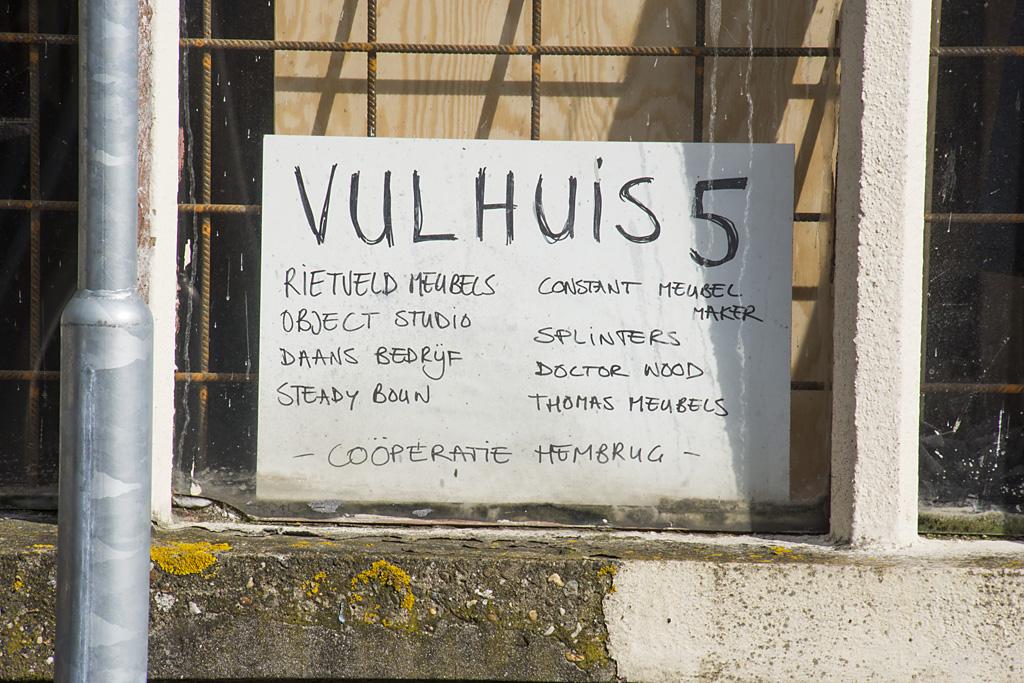 VULHUiS 5
RIETVELD MEUBELS
OBJECT STUDIO
DAANS BEDRIJF
STEADY BOUW
CONSTANT MEUBEL
MAKER
SPLINTERS
DOCTOR WOOD
THOMAS MEUBELS
- COÖPERATIE HEMBRUG -